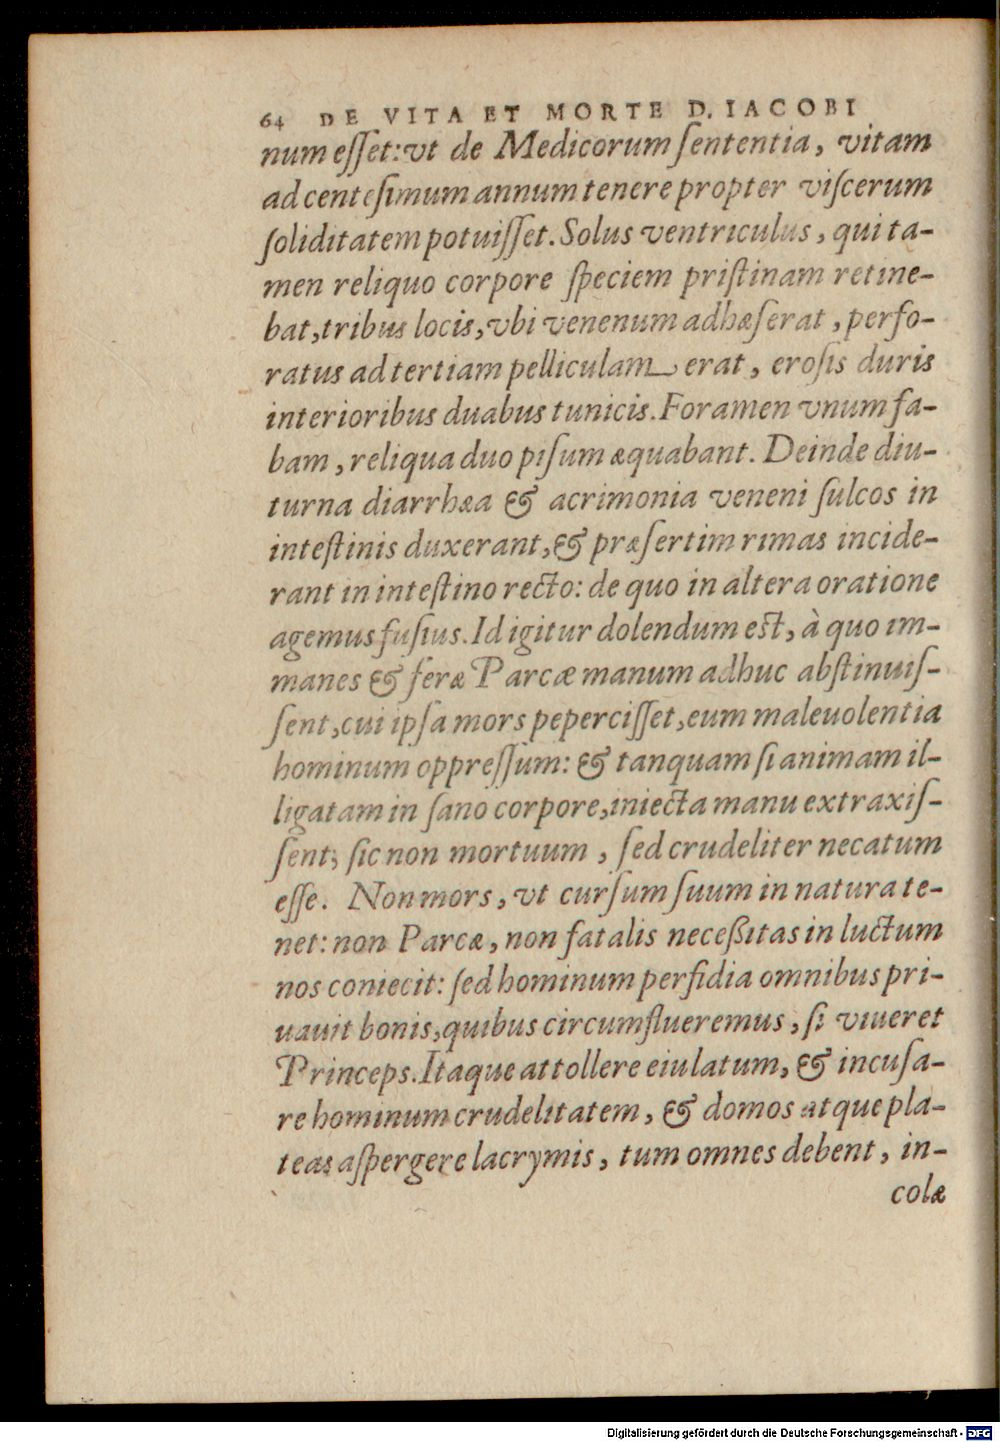 64 DE VITA ET MORTE D. IACOBI
num eſſet: vt de Medicorum ſententia, vitam
ad centeſimum annum tenere propter viſcerum
ſoliditatem potuiſſet. Solus ventriculus, qui ta-
men reliquo corpore ſpeciem priſtinam retine-
bat, tribus locis, vbi venenum adhæſerat, perfo-
ratus ad tertiam pelliculam erat, eroſis duris
interioribus duabus tunicis. Foramen vnum fa-
bam, reliqua duo piſum æquabant. Deinde diu-
turna diarrhæa & acrimonia veneni ſulcos in
inteſtinis duxerant, & præſertim rimas incide-
rant in inteſtino recto: de quo in altera oratione
agemus fuſius. Id igitur dolendum est, à quo im-
manes & feræ Parcæ manum adhuc abſtinuiſ-
ſent, cui ipſa mors peperciſſet, eum maleuolentia
hominum oppreſſum: & tanquam ſi animam il-
ligatam in ſano corpore, iniecta manu extraxiſ-
ſent; ſic non mortuum, ſed crudeliter necatum
eſſe. Non mors, vt curſum ſuum in natura te-
net: non Parcæ, non fatalis neceßitas in luctum
nos coniecit: ſed hominum perfidia omnibus pri-
uauit bonis, quibus circumflueremus, ſi viueret
Princeps. Itaque attollere eiulatum, & incuſa-
re hominum crudelitatem, & domos atque pla-
teas aſpergere lacrymis, tum omnes debent, in-
colæ
Digitalisierung gefördert durch die Deutsche Forschungsgemeinschaft - DFG